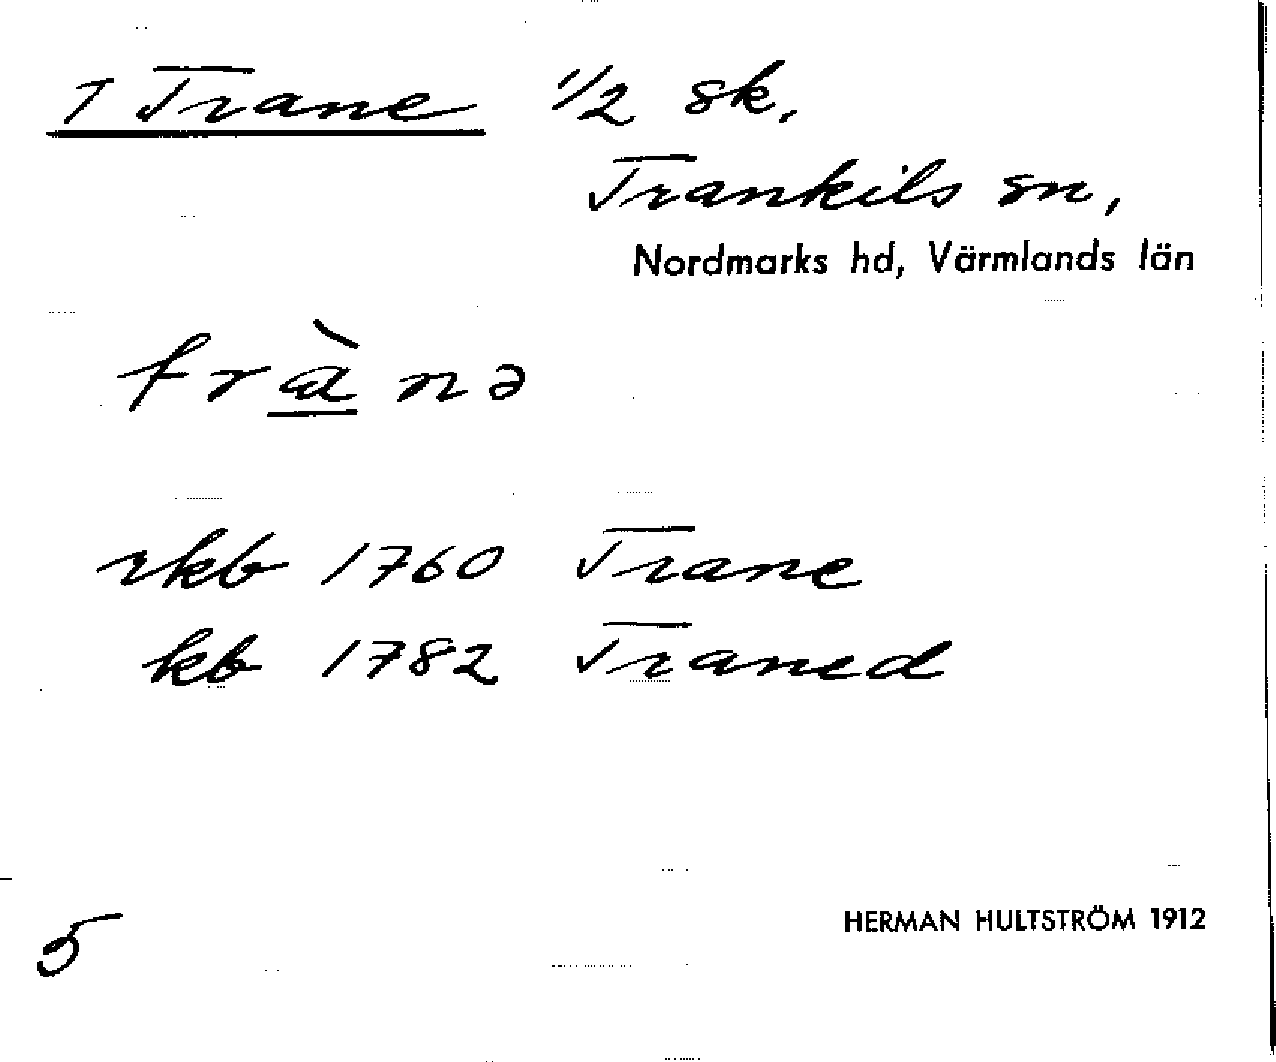 1 Trane 1/2 sk.
Trankils sn,
Nordmarks hd, Värmlands län
træ̀nə
rkb 1760 Trane
kb 1782 Traned
5
HERMAN HULTSTRÖM 1912